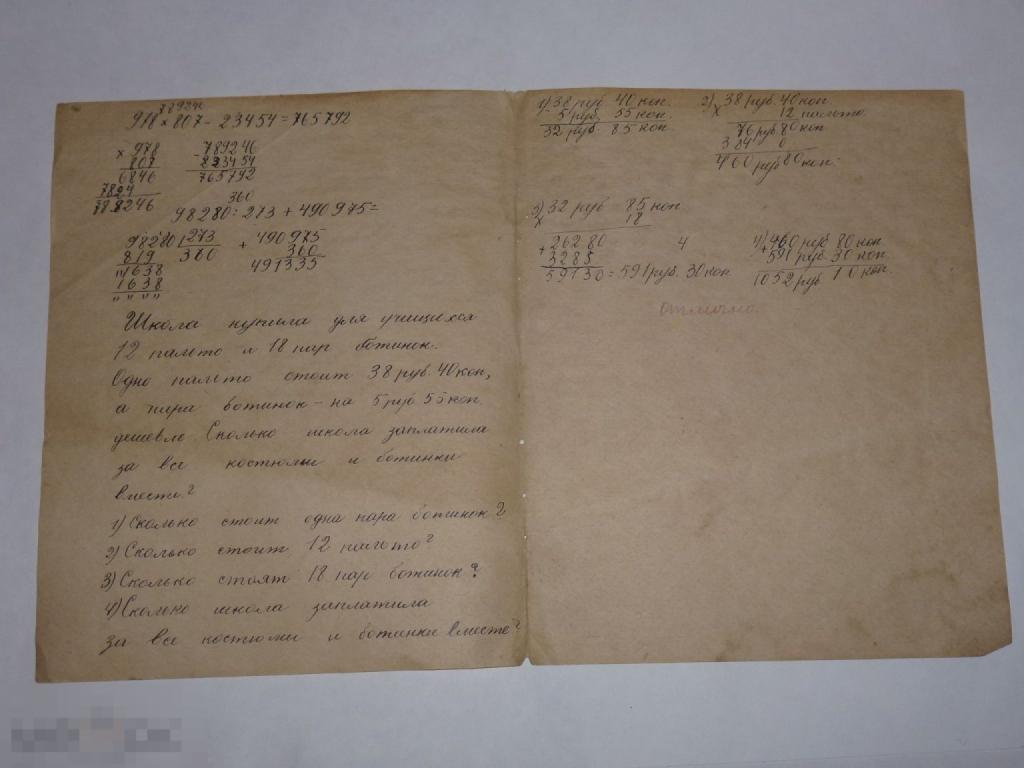 789246
978 × 807 - 23454 = 765792
× 978
807
6846
7824
789246
- 789246
23454
765792
360
98280 : 273 + 490975 =
98280 273
819 360
1638
1638
" " " "
+ 490975
360
491335
Школа купила для учащихся
12 пальто и 18 пар ботинок.
Одно пальто стоит 38 руб. 40 коп,
а пара ботинок - на 5 руб 55 коп.
дешевле Сколько школа заплатила
за все костюмы и ботинки
вместе?
1) Сколько стоит одна пара ботинок?
2) Сколько стоит 12 пальто?
3) Сколько стоят 18 пар ботинок?
4) Сколько школа заплатила
за все костюмы и ботинки вместе?
1) 38 руб 40 коп.
- 5 руб, 55 коп.
32 руб. 85 коп.
2) 38 руб 40 коп
× 12 пальто.
76 руб 80 коп
384 0
460 руб 80 коп.
3) 32 руб 85 коп
× 18
+ 26280
3285
59130 = 591 руб. 30 коп
4
4) 460 руб 80 коп
+ 591 руб. 30 коп.
1052 руб 10 коп.
Отлично.